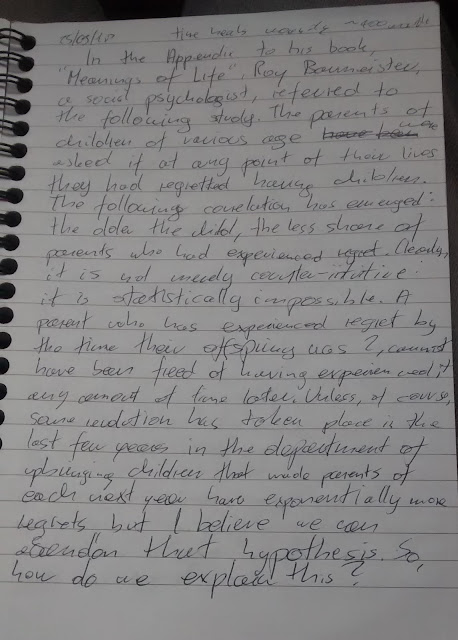 time heals wounds
In the Appendix to his book,
"Meanings of Life", Roy Baumeister,
a social psychologist, referred to
the following study. The parents of
children of various age were
asked if at any point of their lives
they had regretted having children.
The following correlation has emerged:
the older the child, the less share of
parents who had experienced regret. Clearly,
it is not merely counter-intuitive:
it is statistically impossible. A
parent who has experienced regret by
the time their offspring was 2, cannot
have been freed of having experienced it
any amount of time later. Unless, of course,
some revolution has taken place in the
last few years in the department of
upbringing children that made parents of
each next year have exponentially more
regrets, but I believe we can
abandon that hypothesis. So,
how do we explain this?